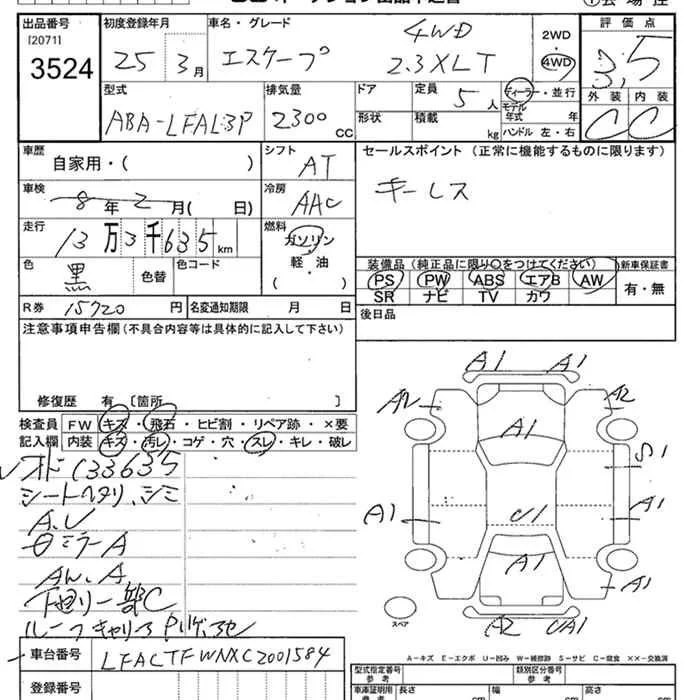 出品番号 初度登録年月 車名・グレード 評価点
I20711
3524 25 3月 エスケープ 4WD 2WD 4WD 3.5
2.3XLT
型式 排気量 ドア 定員 5人 ディーラー・並行 外装 内装
ABA-LFAL3P 2300CC 形状 積載 kg モデル年式 年 C C
ハンドル 左・右
車歴 シフト セールスポイント (正常に機能するものに限ります)
自家用・( ) AT
車検 冷房 キーレス
8年2月( 日) AAC
走行 燃料
13万3千635km ガソリン・軽・油・( )
色 色替 色コード 装備品(純正品に限り○をつけてください) 新車保証書
黒 PS PW ABS エアB AW 有・無
SR ナビ TV カワ
R券 15720円 名変通知期限 月 日 後日品
注意事項申告欄(不具合内容等は具体的に記入して下さい)
修復歴 有 〔箇所 〕
検査員 FW キズ・飛石・ヒビ割・リペア跡・×要
記入欄 内装 キズ・汚レ・コゲ・穴・スレ・キレ・破レ
133635
シートヘタリ、シミ
A.U
ミラーA
AW.A
下廻り一部C
A1 A1
A2 A2
A1
S1
A1 U1 A1
A1
A1
A2 UA1
スペア
A-キズ E-エクボ U-凹み W-補修跡 S-サビ C-腐食 XX-交換済
車台番号 LFACTFWNXC2001584
登録番号
型式指定番号 参考 類別区分番号 参考
車庫証明用 参考 長さ cm 幅 cm 高さ cm